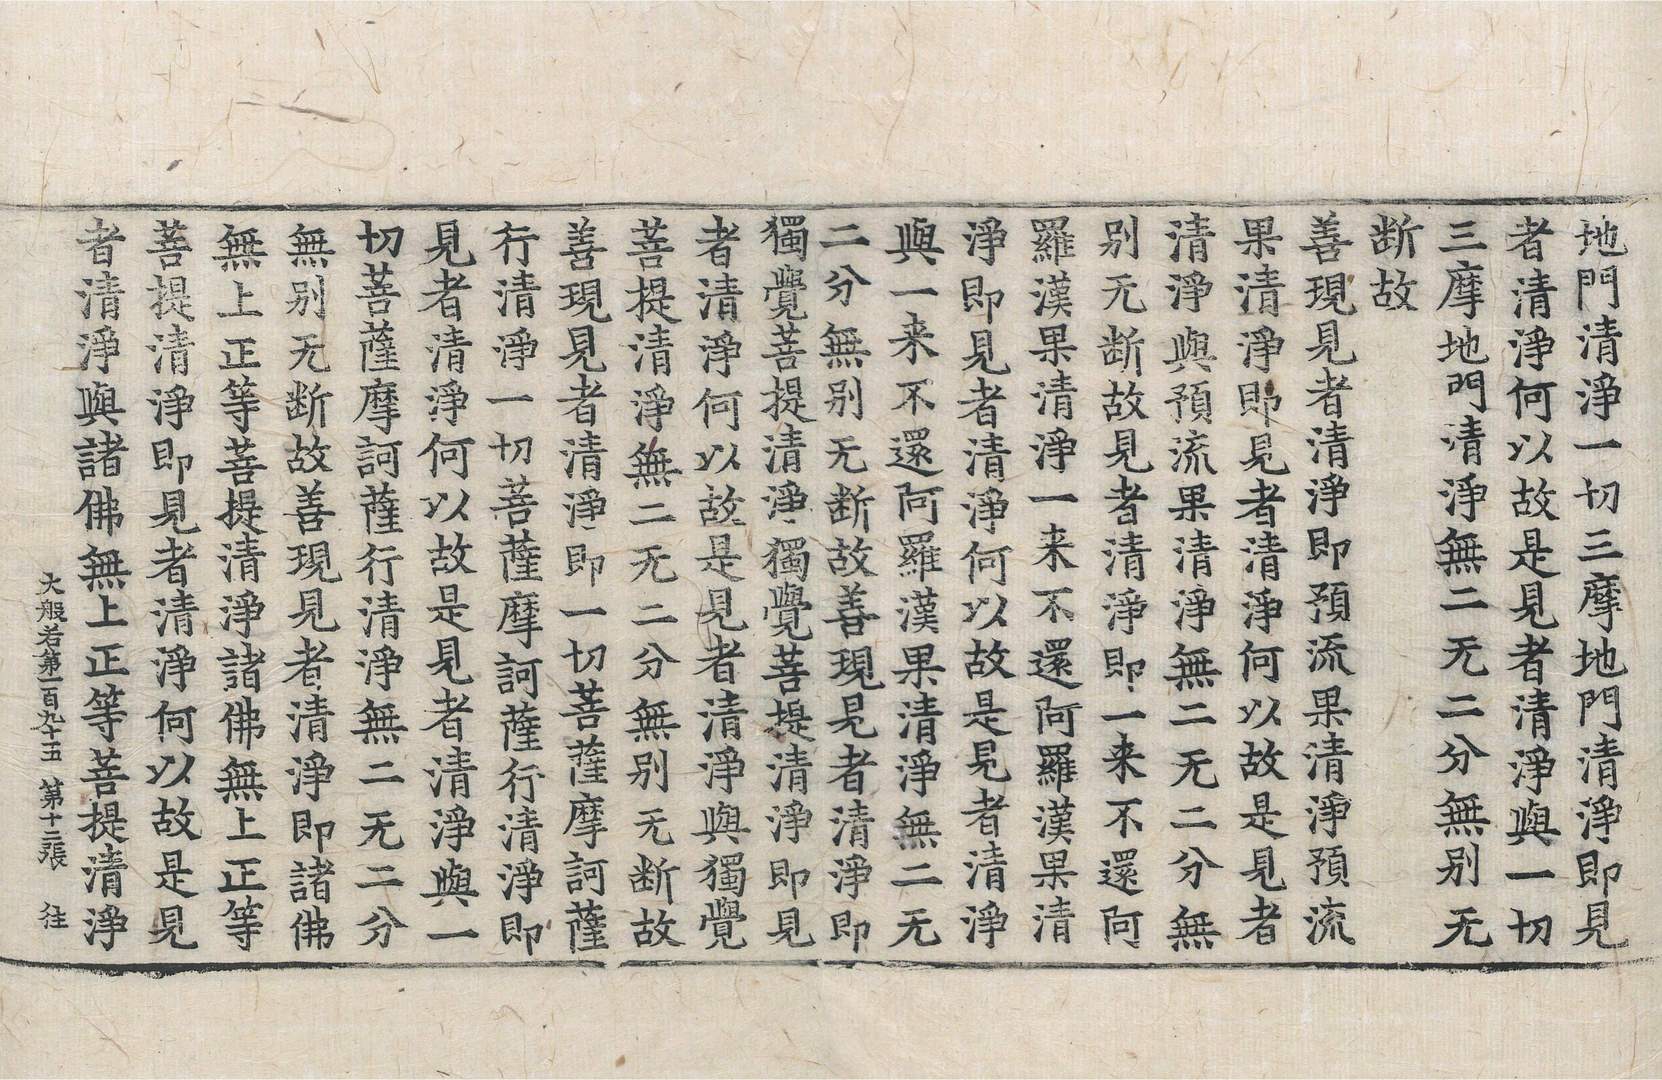 地門清淨一切三摩地門清淨即見
者清淨何以故是見者清淨與一切
三摩地門清淨無二无二分無別无
断故
善現見者清淨即預流果清淨預流
果清淨即見者清淨何以故是見者
清淨與預流果清淨無二无二分無
别无断故見者清淨即一来不還阿
羅漢果清淨一来不還阿羅漢果清
淨即見者清淨何以故是見者清淨
與一来不還阿羅漢果清淨無二无
二分無别无断故善現見者清淨即
獨覺菩提清淨獨覺菩提清淨即見
者清淨何以故是見者清淨與獨覺
菩提清淨無二无二分無别无断故
善現見者清淨即一切菩薩摩訶薩
行清淨一切菩薩摩訶薩行清淨即
見者清淨何以故是見者清淨與一
切菩薩摩訶薩行清淨無二无二分
無别无断故善現見者清淨即諸佛
無上正等菩提清淨諸佛無上正等
菩提清淨即見者清淨何以故是見
者清淨與諸佛無上正等菩提清淨
大般若第一百九十五 第十二張 往